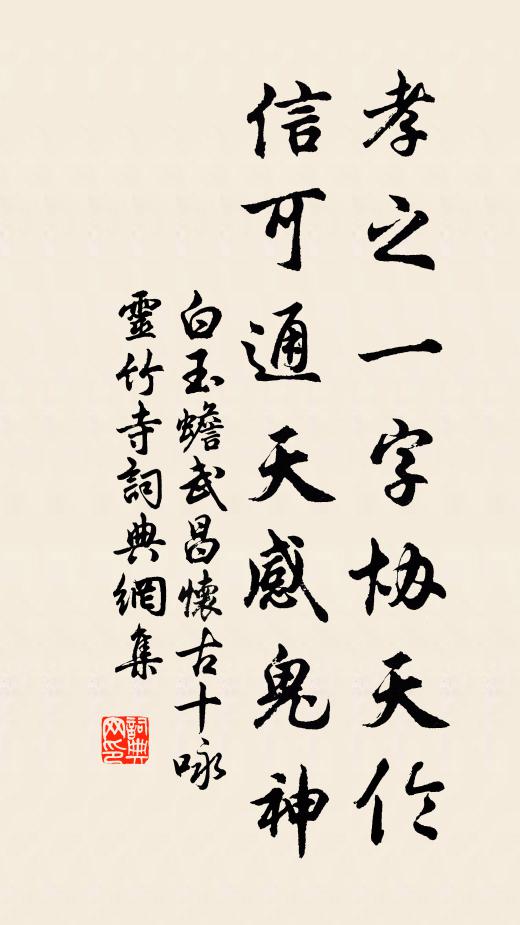 孝之一字协天伦
信可通天感鬼神
白玉蟾武昌懷古十咏
靈竹寺詞典網集
詞典网印